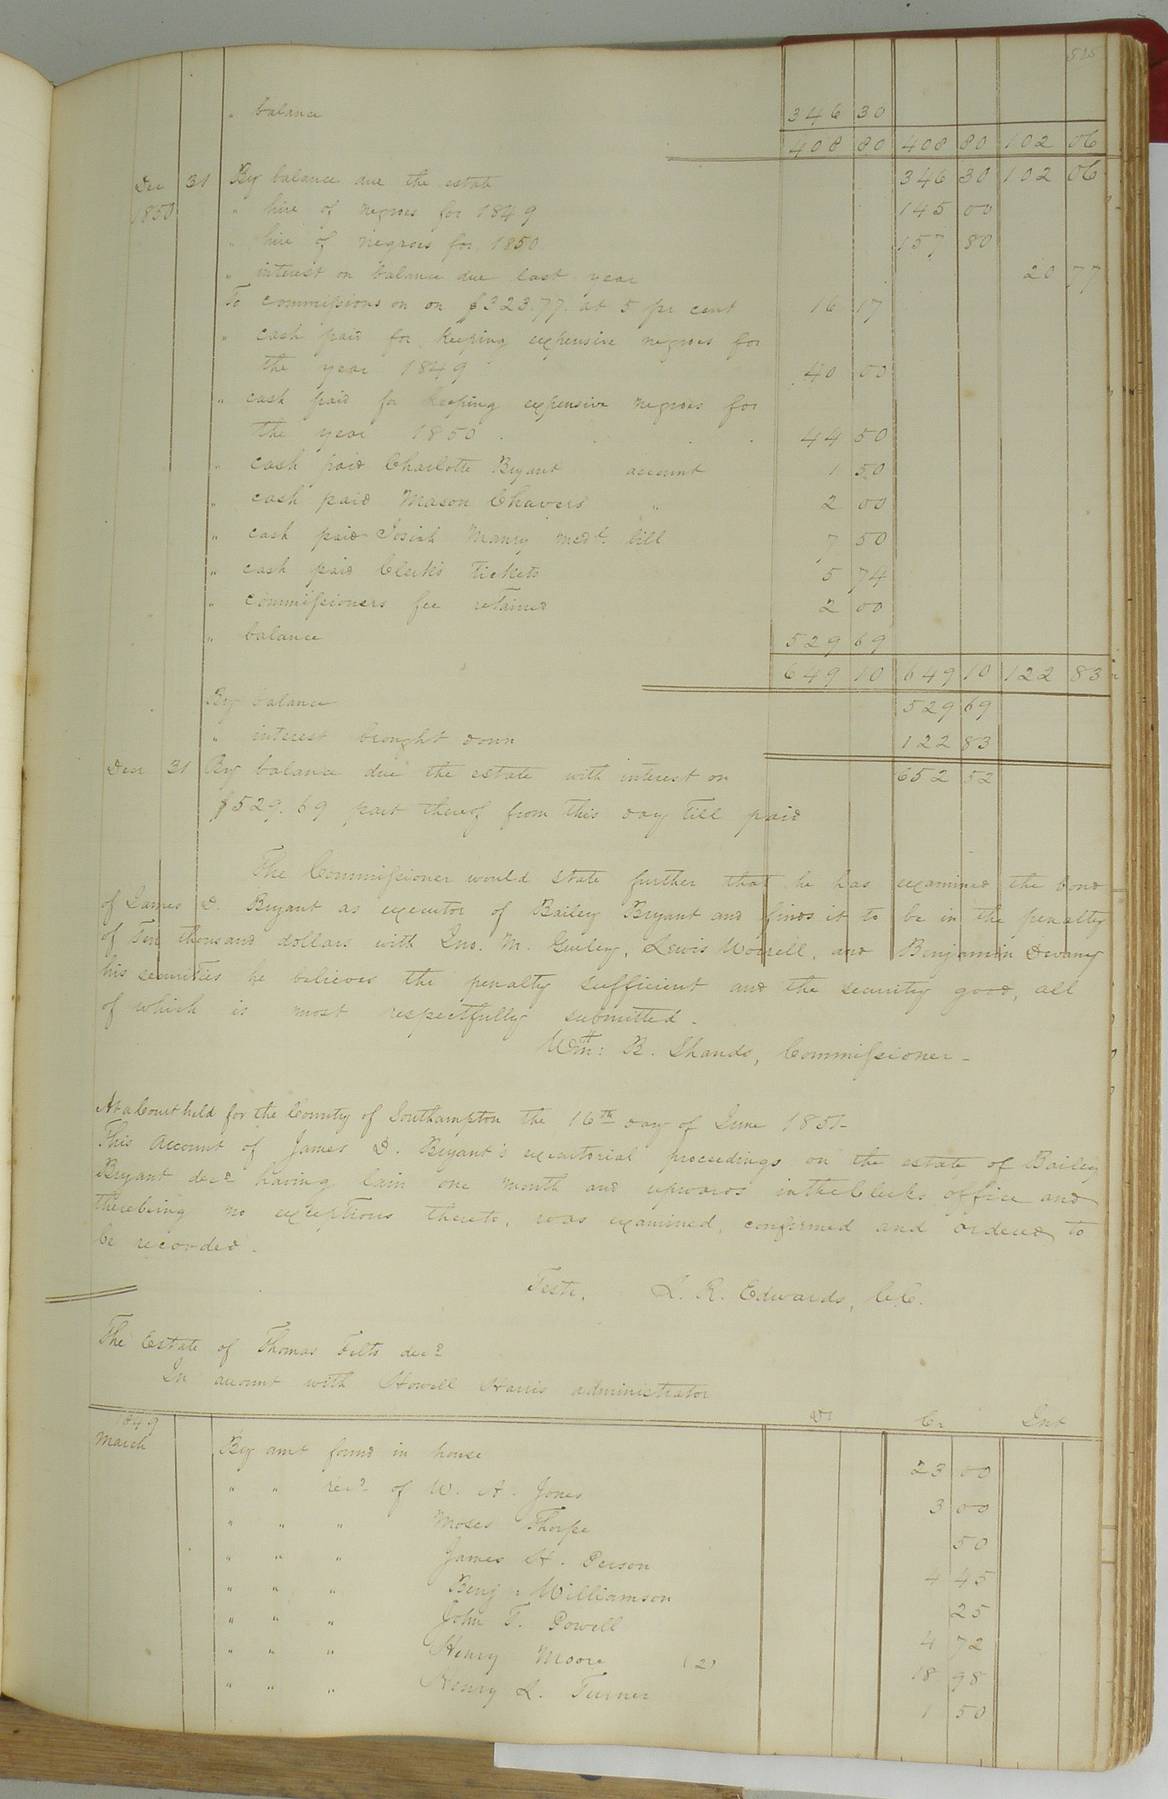 515
" balance 346 30
408 80 408 80 102 06
Dec 31 By balance due the estate 346 30 102 06
1850 " hire of negroes for 1849 145 00
" hire of negroes for 1850 157 80
" interest on balance due last year 20 77
To commissions on on $323.77 at 5 pr cent 16 17
" cash paid for keeping expensive negroes for
the year 1849 40 00
" cash paid for keeping expensive negroes for
the year 1850 44 50
" cash paid Charlotte Bryant account 1 50
" cash paid Mason Chavers " 2 00
" cash paid Josiah Manry medl. bill 7 50
" cash paid Clerks tickets 5 74
" commissioners fee retained 2 00
" balance 529 69
649 10 649 10 122 83
By balance 529 69
" interest brought down 122 83
Decr 31 By balance due the estate with interest on 652 52
$529.69 part thereof from this day till paid
The Commissioner would state further that he has examined the bond
of James D. Bryant as executor of Bailey Bryant and finds it to be in the penalty
of Ten thousand dollars with Jno. M. Gurley, Lewis Worrell, and Benjamin Devany
his securities he believes the penalty sufficient and the security good, all
of which is most respectfully submitted.
Wm: B. Shands, Commissioner -
At a Court held for the County of Southampton the 16th day of June 1851-
This Account of James D. Bryant's executorial proceedings on the estate of Bailey
Bryant decd having lain one month and upwards in the Clerks office and
there being no exceptions thereto, was examined, confirmed and ordered to
be recorded.
Teste, L. R. Edwards, C.C.
The Estate of Thomas Felts decd
In account with Howell Harris administrator
Dr Cr Int
1849
March By amt found in house 23 00
" " recd of W. A. Jones 3 00
" " " Moses Thorpe 50
" " " James H. Person 4 45
" " " Benj n Williamson 25
" " " John T. Powell 4 72
" " " Henry Moore (2) 18 98
" " " Henry L. Turner 1 50